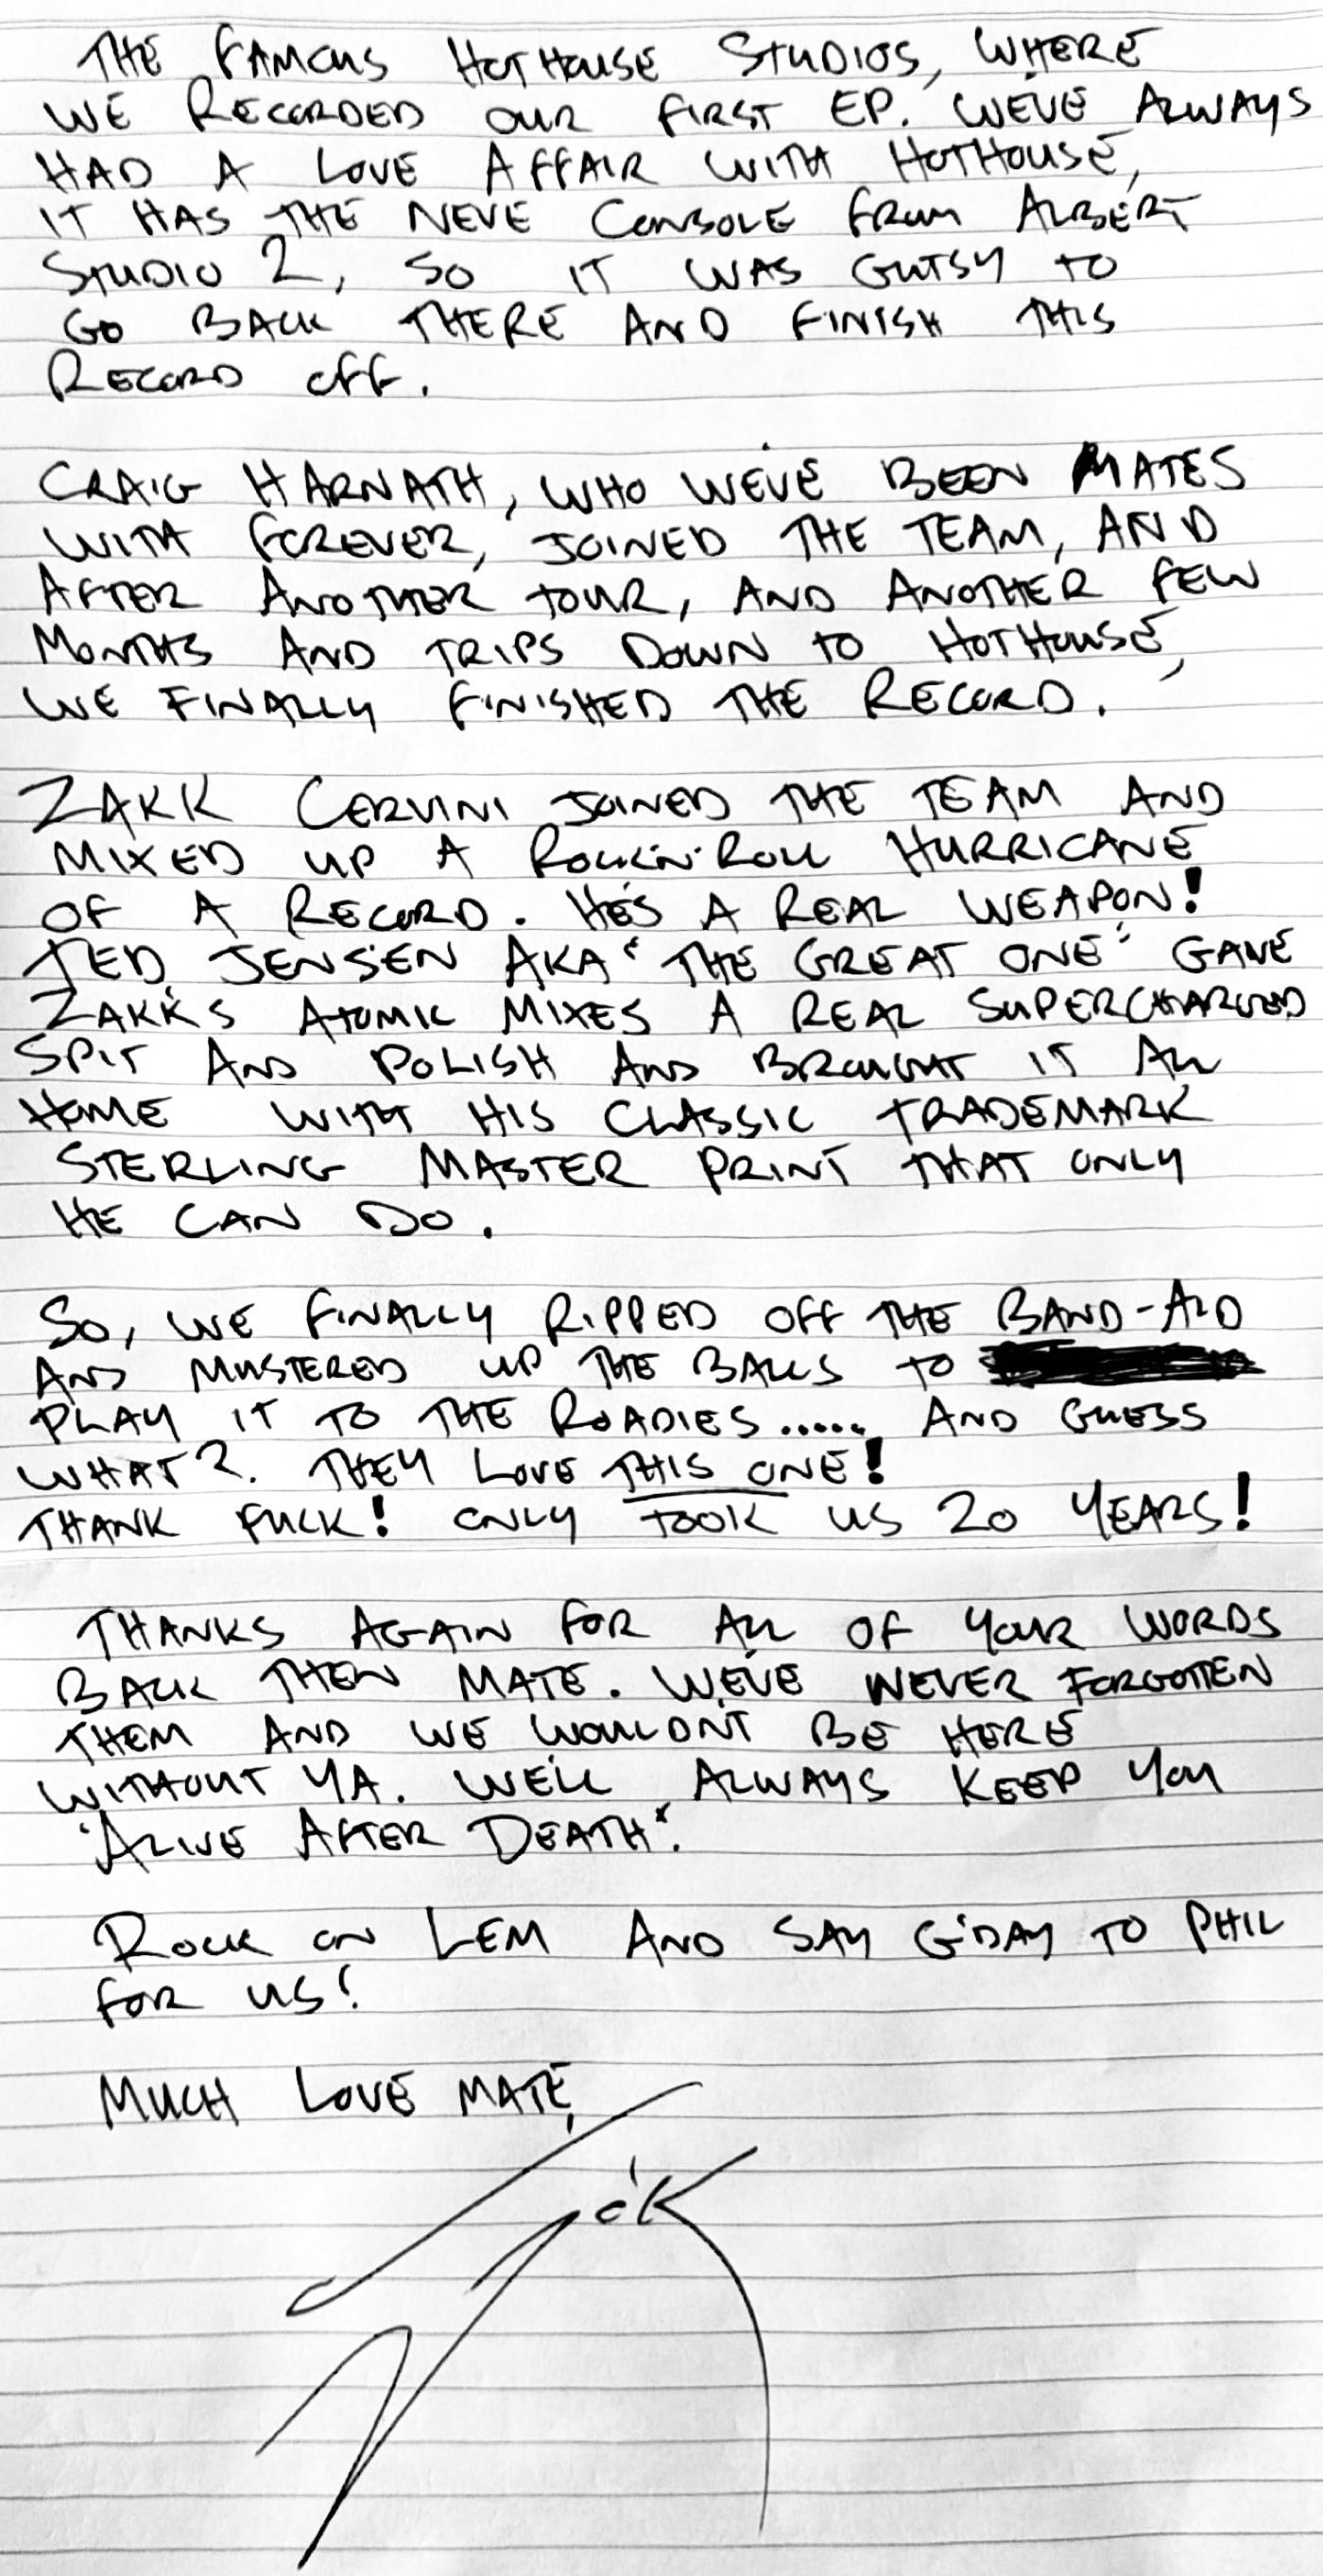 THE FAMOUS HOTHOUSE STUDIOS, WHERE
WE RECORDED OUR FIRST EP. WE'VE ALWAYS
HAD A LOVE AFFAIR WITH HOTHOUSE,
IT HAS THE NEVE CONSOLE FROM ALBERT
STUDIO 2, SO IT WAS GUTSY TO
GO BACK THERE AND FINISH THIS
RECORD OFF.
CRAIG HARNATH, WHO WE'VE BEEN MATES
WITH FOREVER, JOINED THE TEAM, AND
AFTER ANOTHER TOUR, AND ANOTHER FEW
MONTHS AND TRIPS DOWN TO HOTHOUSE,
WE FINALLY FINISHED THE RECORD.
ZAKK CERVINI JOINED THE TEAM AND
MIXED UP A ROCK'N'ROLL HURRICANE
OF A RECORD. HE'S A REAL WEAPON!
TED JENSEN AKA "THE GREAT ONE" GAVE
ZAKK'S ATOMIC MIXES A REAL SUPERCHARGED
SPIT AND POLISH AND BROUGHT IT ALL
HOME WITH HIS CLASSIC TRADEMARK
STERLING MASTER PRINT THAT ONLY
HE CAN DO.
SO, WE FINALLY RIPPED OFF THE BAND-AID
AND MUSTERED UP THE BALLS TO
PLAY IT TO THE ROADIES ..... AND GUESS
WHAT?. THEY LOVE THIS ONE!
THANK FUCK! ONLY TOOK US 20 YEARS!
THANKS AGAIN FOR ALL OF YOUR WORDS
BACK THEN MATE. WE'VE NEVER FORGOTTEN
THEM AND WE WOULDN'T BE HERE
WITHOUT YA. WE'LL ALWAYS KEEP YOU
"ALIVE AFTER DEATH".
ROCK ON LEM AND SAY G'DAY TO PHIL
FOR US!
MUCH LOVE MATE,